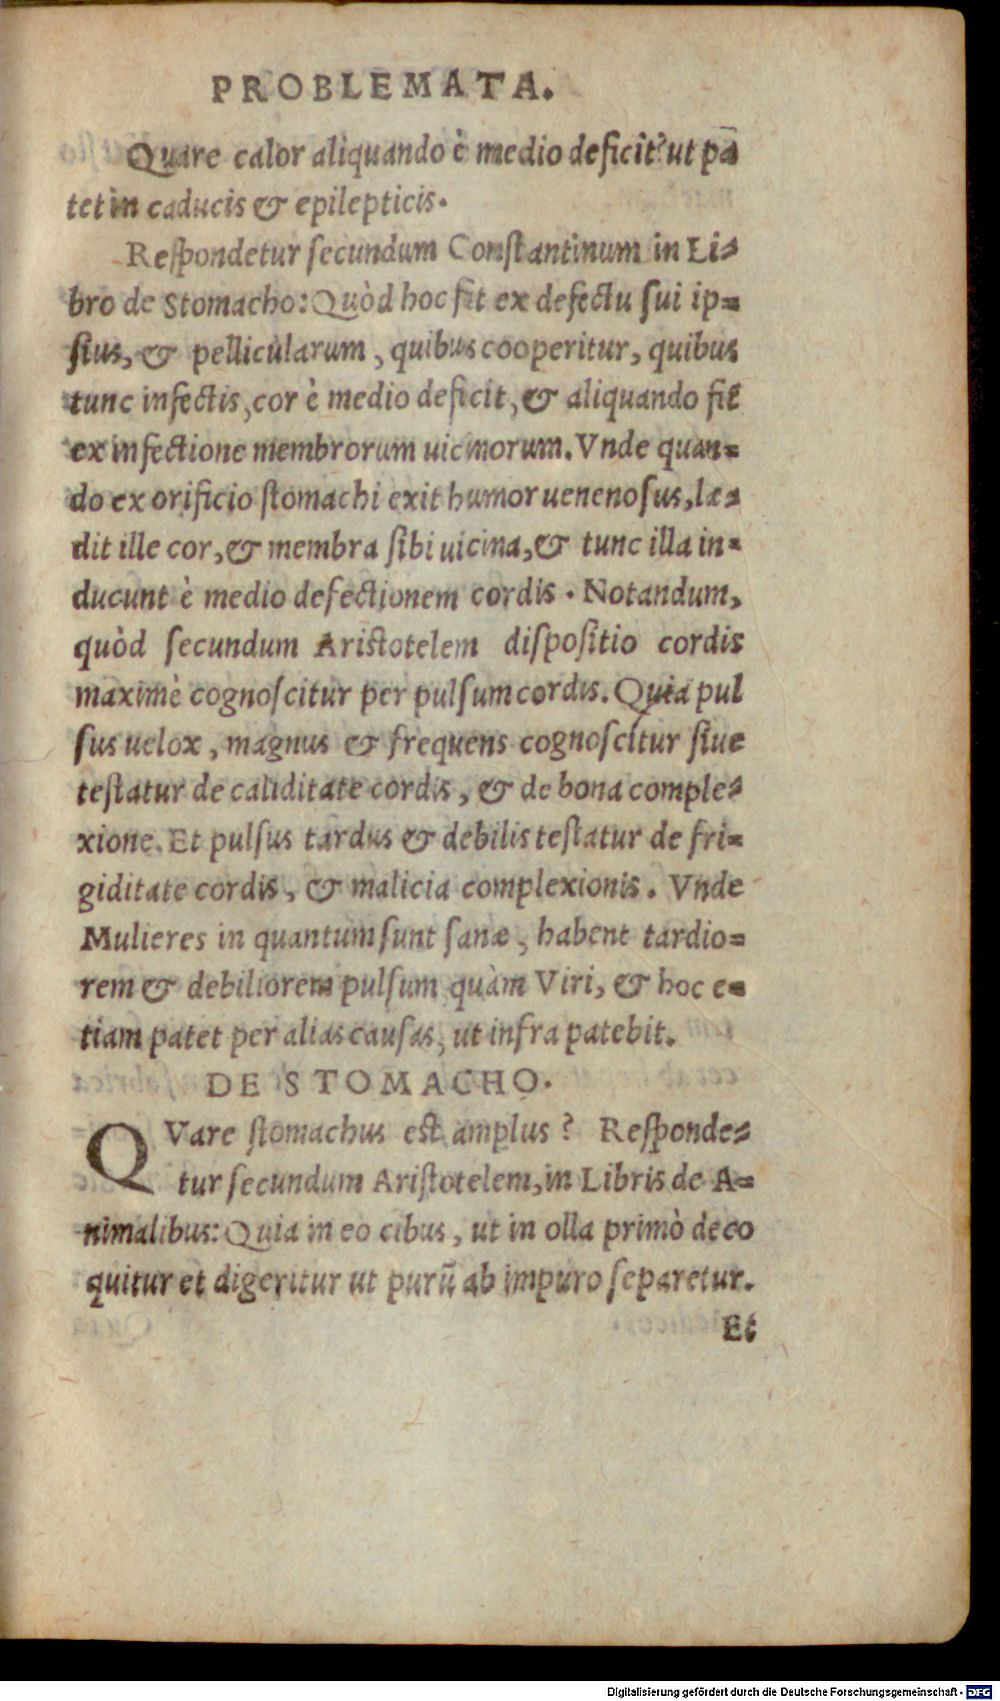 PROBLEMATA.
Quare calor aliquando è medio deficit? ut pā
tet in caducis & epilepticis.
Respondetur secundum Constantinum in Li-
bro de Stomacho: Quòd hoc fit ex defectu sui ip-
sius, & pellicularum, quibus cooperitur, quibus
tunc infectis, cor è medio deficit, & aliquando fit
ex infectione membrorum uicinorum. Vnde quan-
do ex orificio stomachi exit humor uenenosus, læ-
dit ille cor, & membra sibi uicina, & tunc illa in-
ducunt è medio defectionem cordis. Notandum,
quòd secundum Aristotelem dispositio cordis
maximè cognoscitur per pulsum cordis. Quia pul
sus uelox, magnus & frequens cognoscitur siue
testatur de caliditate cordis, & de bona comple-
xione. Et pulsus tardus & debilis testatur de fri-
giditate cordis, & malicia complexionis. Vnde
Mulieres in quantum sunt sanæ, habent tardio-
rem & debiliorem pulsum quàm Viri, & hoc e-
tiam patet per alias causas, ut infra patebit.
DE STOMACHO.
QVare stomachus est amplus? Responde-
tur secundum Aristotelem, in Libris de A-
nimalibus: Quia in eo cibus, ut in olla primò deco
quitur et digeritur ut purū ab impuro separetur.
Et
Digitalisierung gefördert durch die Deutsche Forschungsgemeinschaft - DFG